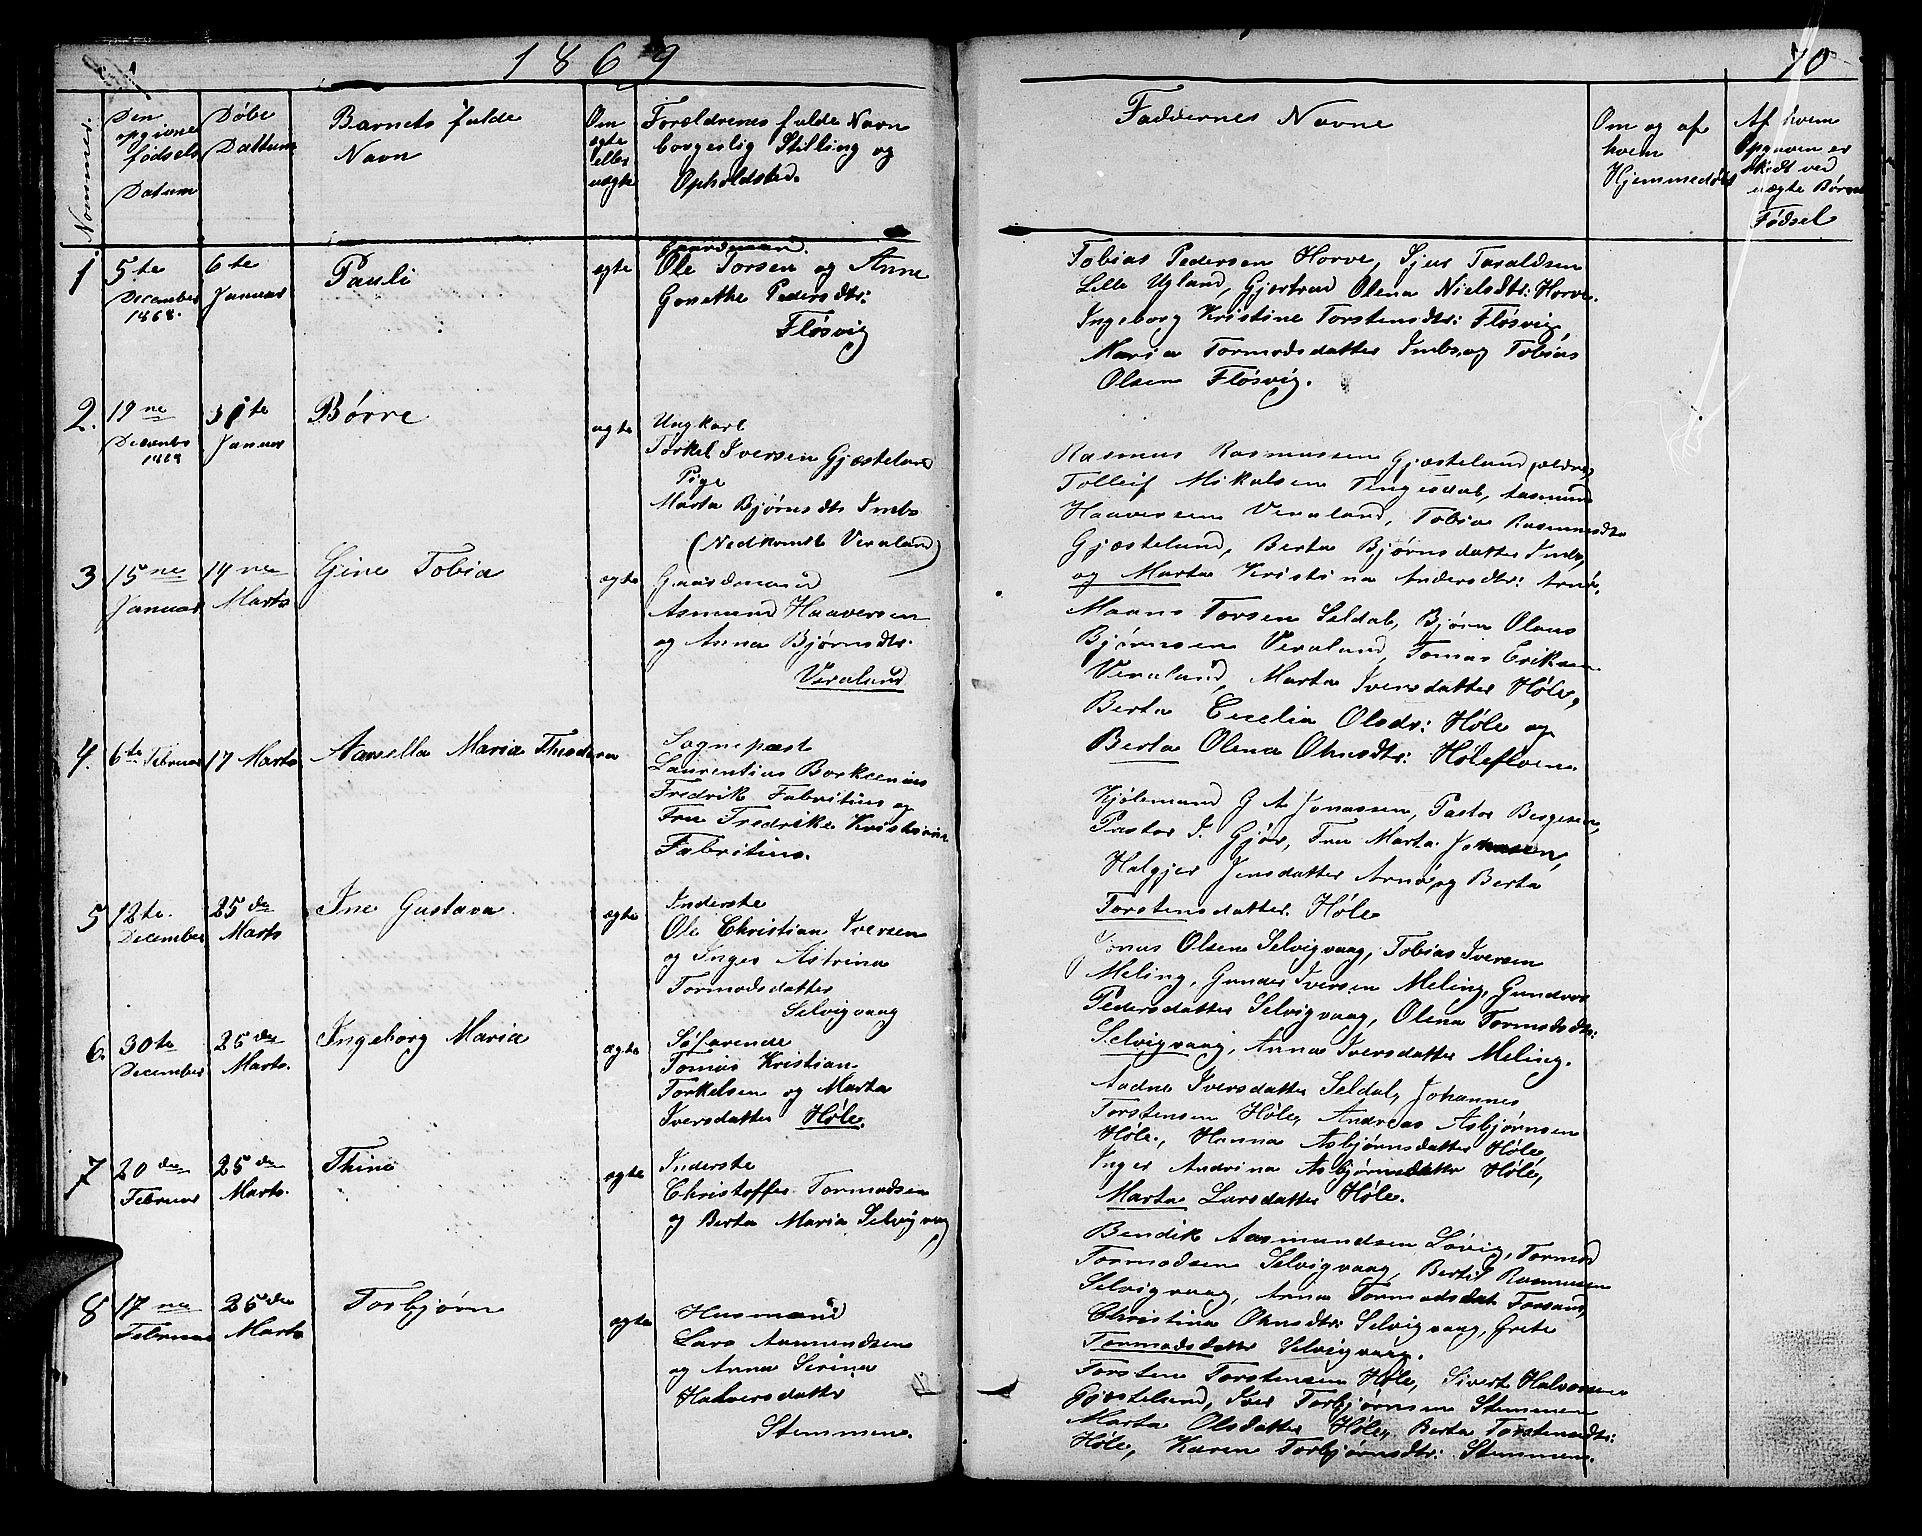 1869
70
Nommer.
Den opgivne fødsels Datum
Døbe Dattum
Barnets fulde Navn
Om egte eller uægte
Forældrenes fulde Navn borgerlig Stilling og Opholdsted.
Faddernes Navne
Om og af hvem Hjemmedøbt
Af hvem Opgaven er skedt ved uægte Børns Fødsel
1 5te December 1868. 6te Januar Pauli egte
Gaardmand
Ole Torsen og Anne
Gonethe Pedersdtr:
Fløsvig
Tobias Pedersen Horve, Sjur Taraldsen
Lille Ugland, Gjertrud Olena Nielsdtr: Horve.
Ingeborg Kristine Torstensdtr: Fløsvig,
Maria Tormodsdatter Imbs, og Tobias
Olsen Fløsvig.
2. 19ne Decembr 1868 31te Januar Børre egte
Ungkarl
Torkel Iversen Gjæsteland
Pige
Marta Bjørnsdtr Imbs
(Nedkomst Veraland)
Rasmus Rasmussen Gjæsteland, ældre,
Tolleif Mikalsen Tengesdal, Aasmund
Haaversen Veraland, Tobia Rasmusdtr
Gjæsteland, Berta Bjørnsdatter Imbs,
og Marta Kristina Andersdtr: Arnø.
3 15ne Januar 14ne Marts Gine Tobia egte
Gaardmand
Asmund Haaversen
og Anna Bjørnsdtr:
Veraland
Maans Torsen Seldal, Bjørn Olaus
Bjørnsen Veraland, Tomas Eriksen
Veraland, Marta Iversdatter Høle,
Berta Cecelia Olsdr: Høle og
Berta Olena Ohnsdtr: Høleftoene.
4. 6te Februar 17 Marts Aansella Maria Theodora
Sognepæst
Laurentius Borksenius
Fredrik Fabritius og
Fru Fredrike Kristine
Fabritius.
Kjølemand G A Jonassen, Pastor Bergesen,
Pastor I. Gjør, Fru Marta Johnsen,
Halgjer Jensdatter Arnø, og Berta
Torstensdatter. Høle
5 12te. December 25de Marts Ine Gustava egte
Inderste
Ole Christian Iversen
og Inger Astrina
Tormodsdatter
Selvigvaag
Jonas Olsen Selvigvaag, Tobias Iversen
Meling, Gunder Iversen Meling, Gundvor
Pedersdatter Selvigvaag, Olena Tormodsdtr:
Selvigvaag, Anna Iversdatter Meling.
6. 30te December 25de Marts. Ingeborg Maria egte
Søfarende
Tomas Kristian
Torkelsen og Marta
Iversdatter Høle.
Aadne Iversdatter Seldal, Johannes
Torstensen Høle, Andreas Asbjørnsen
Høle., Hanna Asbjørnsdatter Høle,
Inger Andrina Asbjørnsdatter Høle,
Marta Larsdatter Høle.
7 20de Februar 25de Marts. Thine egte
Inderste
Christoffer Tormodsen
og Berta Maria Selvigvaag
Bendik Aasmundsen Løvig, Tormod
Tormodsen Selvigvaag, Bertil Rasmusen
Selvigvaag, Anna Tormodsdat Forsand,
Christina Ohnsdtr: Selvigvaag, Grete
Tormodsdatter Selvigvaag.
8 17ne Februar 25de Marts Torbjørn egte
Husmand
Lars Aamundsen
og Anna Serina
Halversdatter
Stemmene.
Torsten Torstensen Høle, Sivert Halvorsen
Gjæsteland, Iver Torbjørnsen Stemmene
Marta Olsdatter Høle, Berta Torstensdtr:
Høle, Karen Torbjørnsdtr: Stemmene.